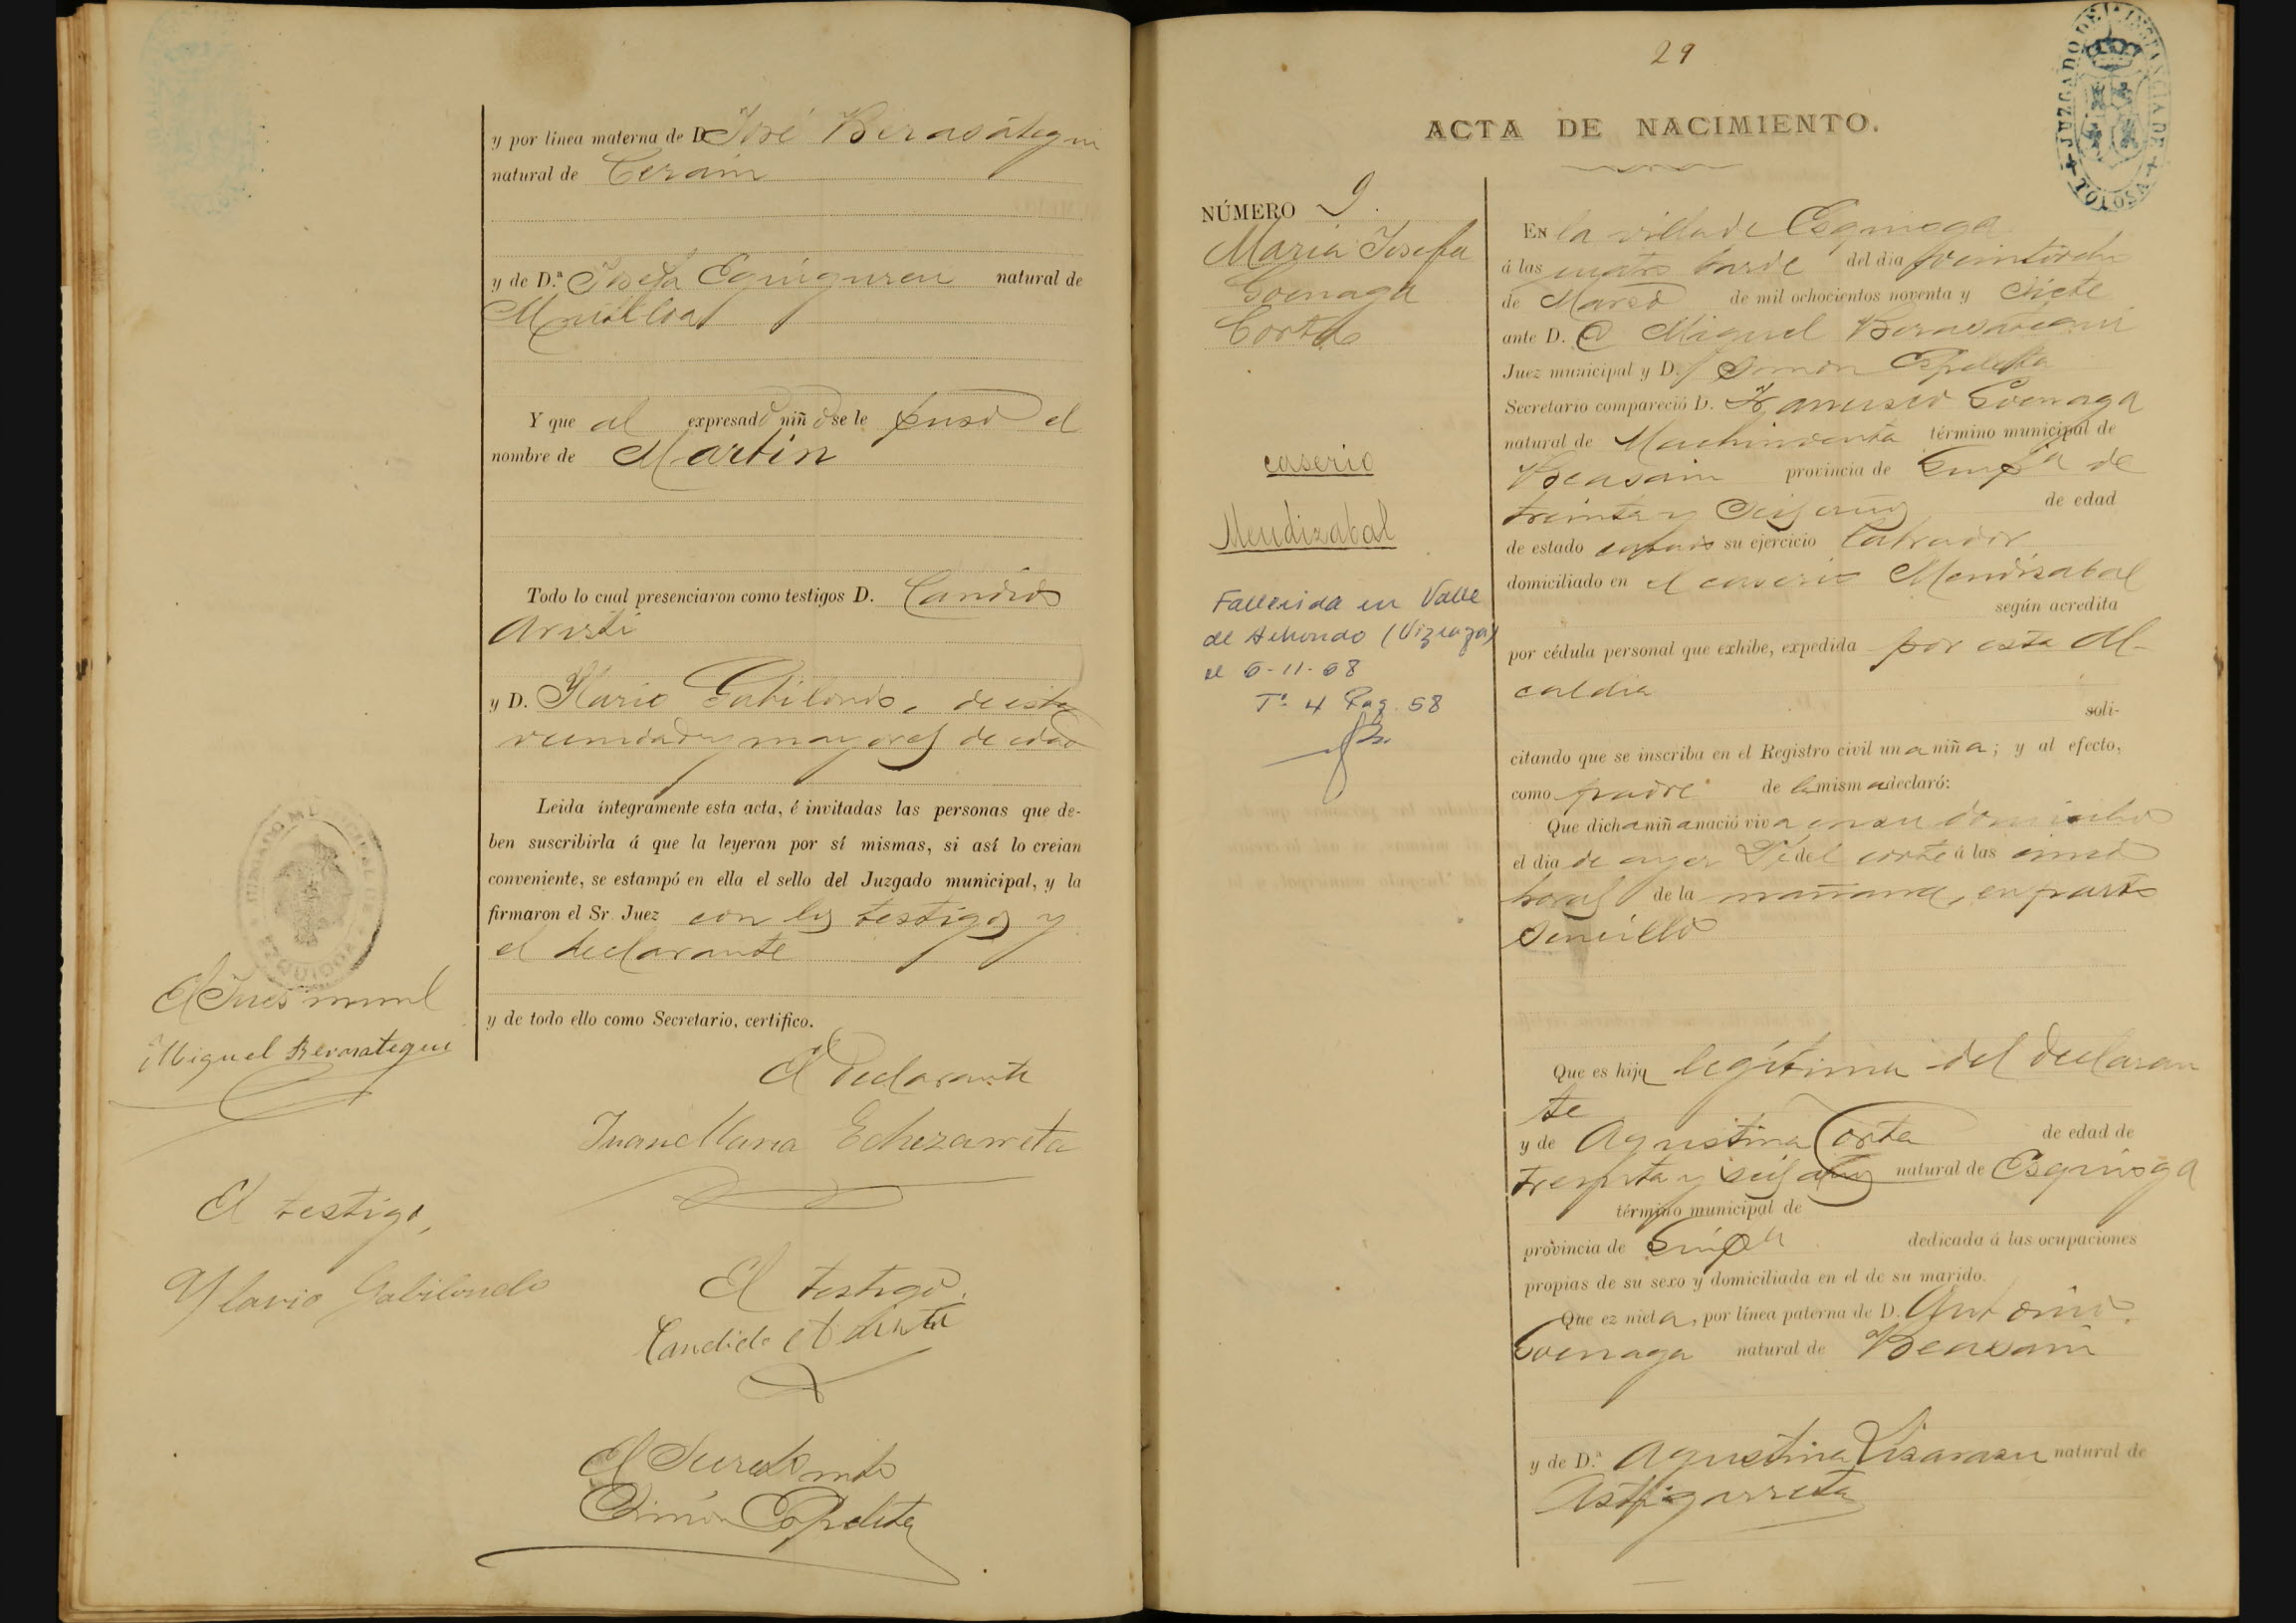 y por línea materna de D. José Berasátegui
natural de Cerain
y de D.ª Josefa Eguiguren natural de
Mutiloa
Y que al expresado niño se le puso el
nombre de Martin
Todo lo cual presenciaron como testigos D. Candido
Aristi
y D. Ylario Gabilondo, de esta
vecindad y mayores de edad
Leida íntegramente esta acta, é invitadas las personas que de-
ben suscribirla á que la leyeran por sí mismas, si así lo creian
conveniente, se estampó en ella el sello del Juzgado municipal, y la
firmaron el Sr. Juez con los testigos y
el declarante
y de todo ello como Secretario, certifico.
El Juez munl
Miguel Berasategui
El Declarante
Juan Maria Echezarreta
El testigo,
Ylario Gabilondo
El testigo.
Candido Aristi
El Secretario
Simón Ezpeleta
29
JUZGADO DE 1.ª INSTANCIA DE TOLOSA
ACTA DE NACIMIENTO.
NÚMERO 9.
Maria Josefa
Goenaga
Corta
caserio
Mendizabal
Fallecida en Valle
de Achondo (Vizcaya)
el 6-11-68
Tº 4 Pag. 58
En la villa de Ezquioga
á las cuatro tarde del dia veintiocho
de Marzo de mil ochocientos noventa y siete
ante D. Miguel Berasategui
Juez municipal y D. Simon Ezpeleta
Secretario compareció D. Francisco Goenaga
natural de Machinventa término municipal de
Beasain provincia de Guipª de
treinta y seis años de edad
de estado casado su ejercicio labrador
domiciliado en el caserio Mendizabal
según acredita
por cédula personal que exhibe, expedida por esta Al-
caldia
soli-
citando que se inscriba en el Registro civil una niña; y al efecto,
como padre de la misma declaró:
Que dicha niña nació viva en su domicilio
el dia de ayer del corte á las cinco
horas de la mañana, en parto
sencillo
Que es hija legítima del declaran
te
y de Agustina Corta de edad de
treinta y seis años natural de Ezquioga
término municipal de
provincia de Guipª dedicada á las ocupaciones
propias de su sexo y domiciliada en el de su marido.
Que ez nieta, por línea paterna de D. Antonio
Goenaga natural de Beasain
y de D.ª Agustina Lizarazu natural de
Astigarreta